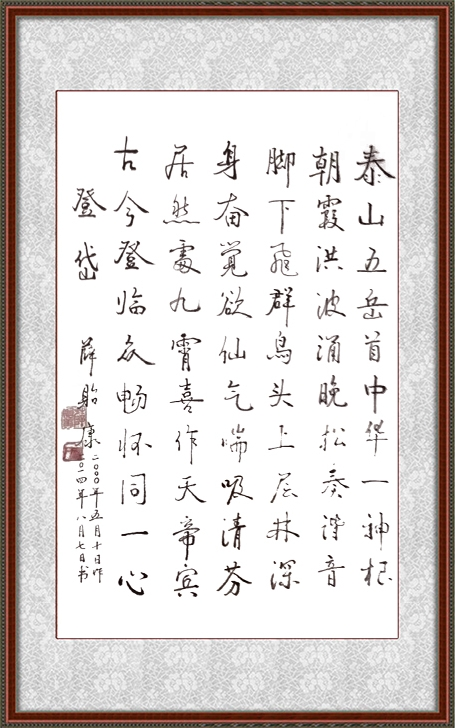 泰山五岳首中华一神根
朝霞洪波涌晚松奏谐音
脚下飛群鸟头上层林深
身奋觉欲仙气喘吸清芬
居然處九霄喜作天帝宾
古今登临众畅怀同一心
登岱 薛贻康
二000年五月十日作
二0一四年八月七日书